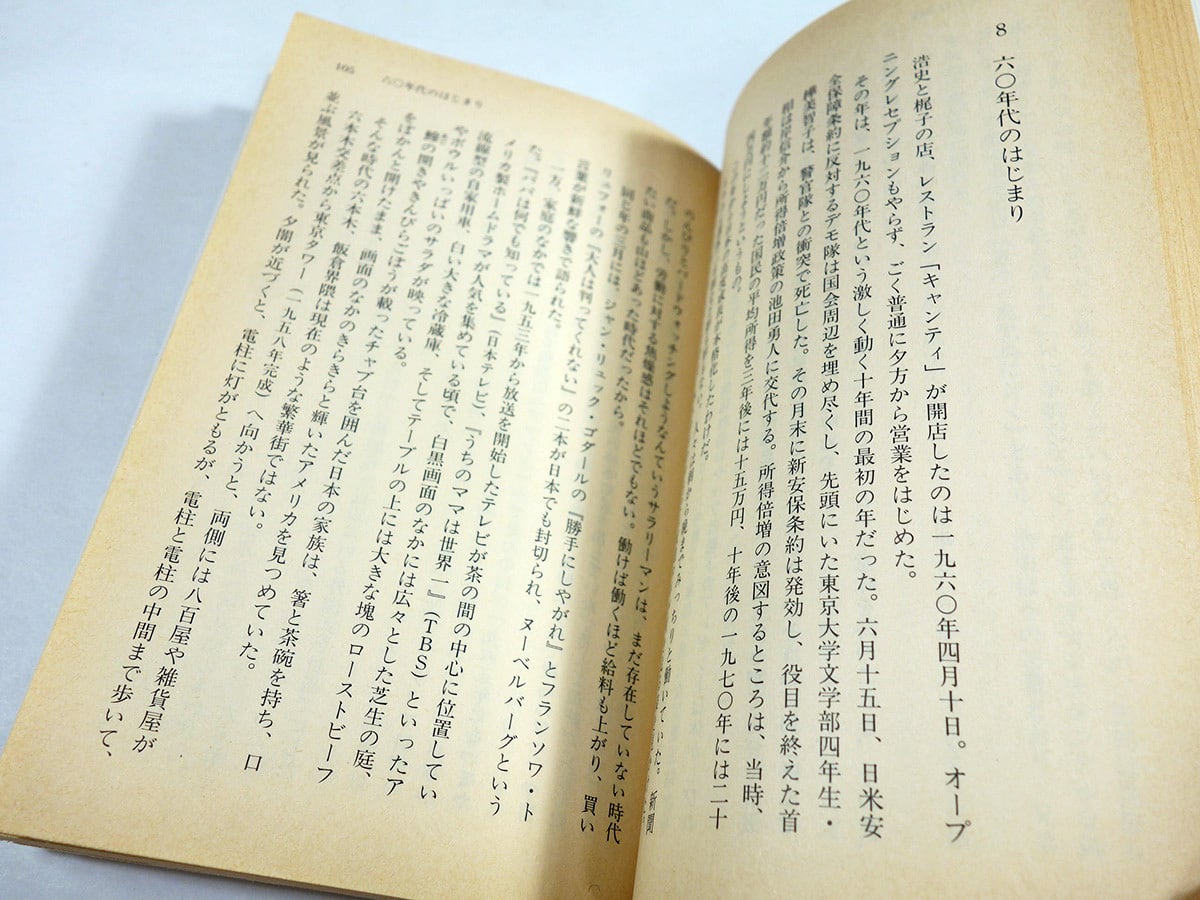 8 六〇年代のはじまり
浩史と梶子の店、レストラン「キャンティ」が開店したのは一九六〇年四月十日。オープ
ニングレセプションもやらず、ごく普通に夕方から営業をはじめた。
その年は、一九六〇年代という激しく動く十年間の最初の年だった。六月十五日、日米安
全保障条約に反対するデモ隊は国会周辺を埋め尽くし、先頭にいた東京大学文学部四年生・
樺美智子は、警官隊との衝突で死亡した。その月末に新安保条約は発効し、役目を終えた首
相は岸信介から所得倍増政策の池田勇人に交代する。所得倍増の意図するところは、当時、
年額約十二万円だった国民の平均所得を三年後には十五万円、十年後の一九七〇年には二十
にしようというもの。
わけだ。
みっちりと働いていた。新聞
バードウォッチングしようなんていうサラリーマンは、まだ存在していない時代
だ。しかし、労働に対する焦燥感はそれほどでもない。働けば働くほど給料も上がり、買い
たい物も山ほどあった時代だったから。
同じ年の三月には、ジャン・リュック・ゴダールの『勝手にしやがれ』とフランソワ・ト
リュフォーの『大人は判ってくれない』の二本が日本でも封切られ、ヌーベルバーグという
言葉が新鮮な響きで語られた。
一方、家庭のなかでは一九五三年から放送を開始したテレビが茶の間の中心に位置してい
た。『パパは何でも知っている』(日本テレビ)、『うちのママは世界一』(TBS)といったア
メリカ製ホームドラマが人気を集めている頃で、白黒画面のなかには広々とした芝生の庭、
流線型の自家用車、白い大きな冷蔵庫、そしてテーブルの上には大きな塊のローストビーフ
やボウルいっぱいのサラダが映っている。
鰺の開きやきんぴらごぼうが載ったチャブ台を囲んだ日本の家族は、箸と茶碗を持ち、口
をぽかんと開けたまま、画面のなかのきらきらと輝いたアメリカを見つめていた。
そんな時代の六本木、飯倉界隈は現在のような繁華街ではない。
六本木交差点から東京タワー(一九五八年完成)へ向かうと、両側には八百屋や雑貨屋が
並ぶ風景が見られた。夕闇が近づくと、電柱に灯がともるが、電柱と電柱の中間まで歩いて、
105 六〇年代のはじまり